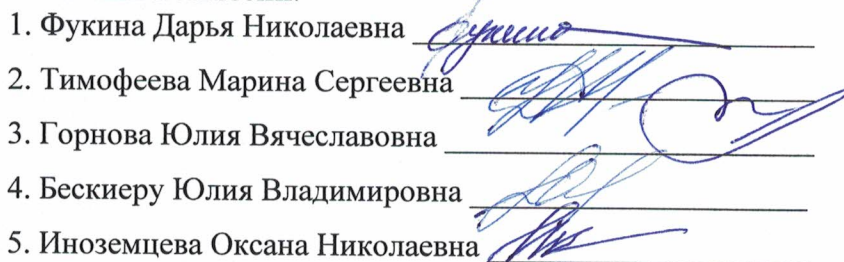 1. Фукина Дарья Николаевна
2. Тимофеева Марина Сергеевна
3. Горнова Юлия Вячеславовна
4. Бескиеру Юлия Владимировна
5. Иноземцева Оксана Николаевна